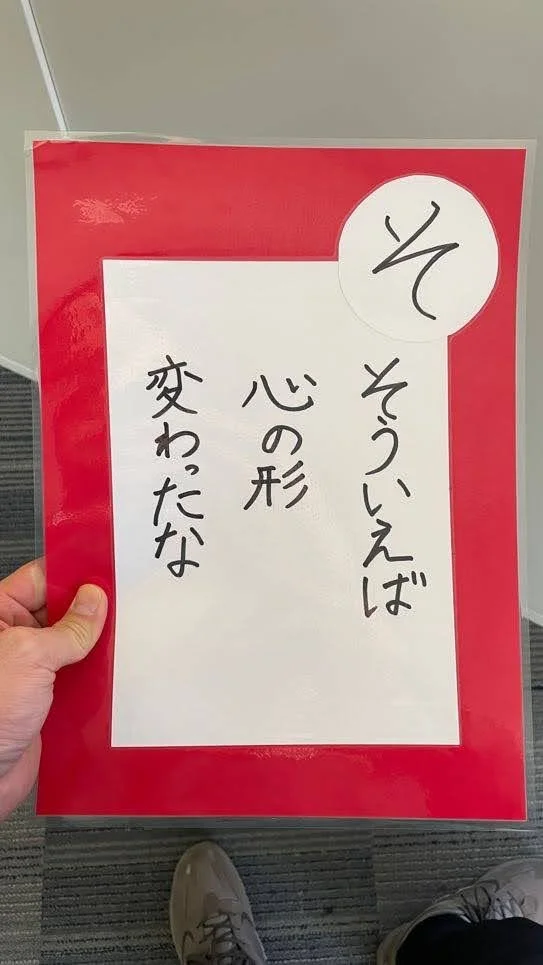 そ
そういえば
心の形
変わったな